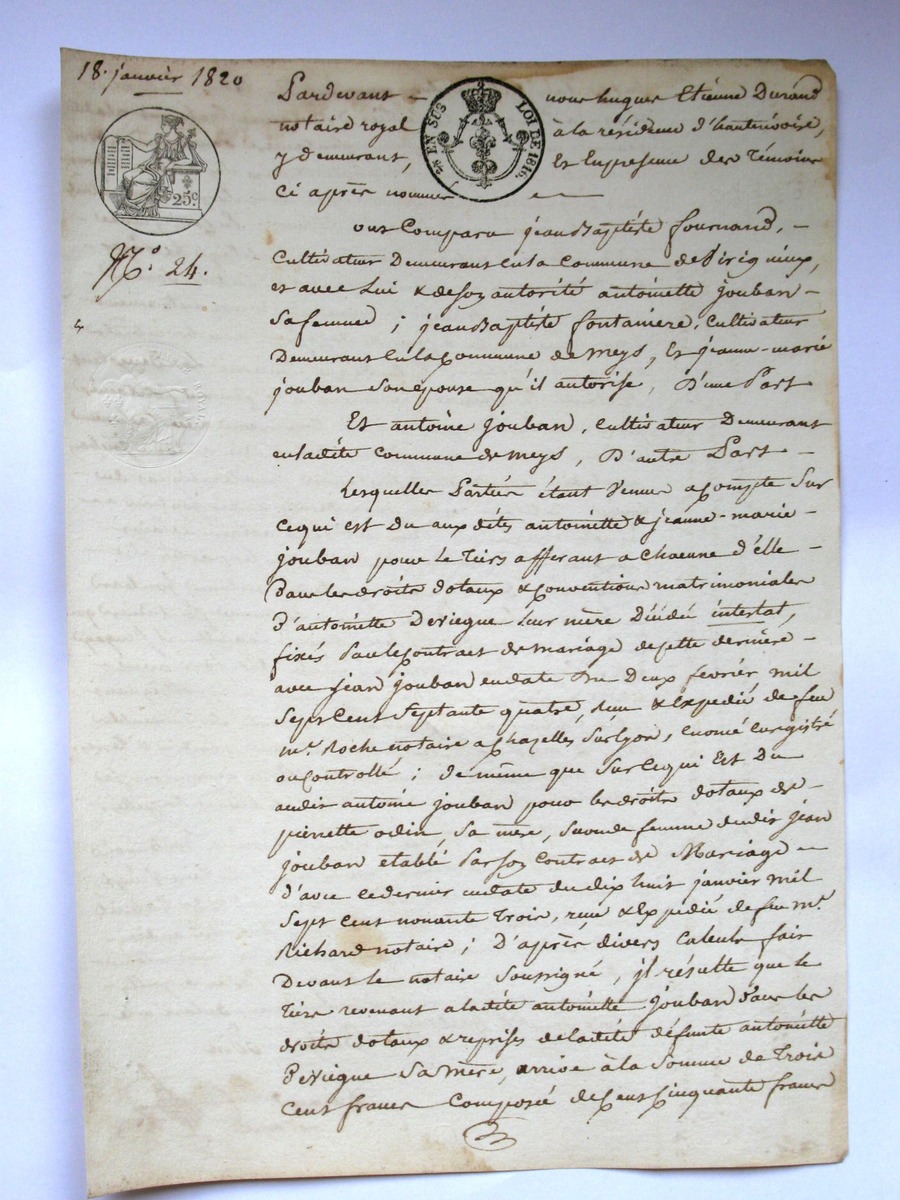 18. janvier 1820
Pardevant nous hugues Etienne Durand
notaire royal à la résidence d'hauterivoire,
y demeurant, Et En presence des Témoins
ci après nommés
EN SUS LOI DE 1816.
25c.
N.º 24.
ont Comparu jean Baptiste fournand,
Cultivateur Demeurant en la Commune de
et avec Lui & de son autorité antoinette jouban
sa femme ; jean Baptiste fontaniere, Cultivateur
Demeurant En la Commune de meys, Et jeanne-marie
jouban son épouse qu'il autorise, D'une Part
Et antoine jouban, Cultivateur Demeurant
en ladite Commune de meys, D'autre Part
Lesquelles Parties étant Venues a Compte Sur
Ce qui est Du aux dites antoinette & jeanne-marie
jouban pour Le Tiers afferant a Chacune d'elle
Dans les droits dotaux & Conventions matrimoniales
D'antoinette leur mère Décédée intestat,
fixés Par le Contract de mariage de cette dernière
avec jean jouban en date Du Deux fevrier mil
Sept Cent Septante quatre, reçu & Expedié de feu
m.e Roche notaire a Chazelles Sur Lyon, Enregistré
ou Controllé ; de même que Sur Ce qui Est Du
audit antoine jouban pour les droits dotaux de
pierrette odin, Sa mère, Seconde femme dudit jean
jouban établi Par son Contract de Mariage
d'avec ce dernier en date du dix huit janvier mil
Sept Cent nonante Trois, reçu & Expedié de feu m.e
Richard notaire ; D'après divers Calculs fait
Devant le notaire Soussigné, il résulte que le
Tiers revenant a ladite antoinette jouban Dans les
droits dotaux & reprises de ladite défunte antoinette
Sa Mère, arrive à la Somme de Trois
Cent francs Composée de Cent Cinquante francs